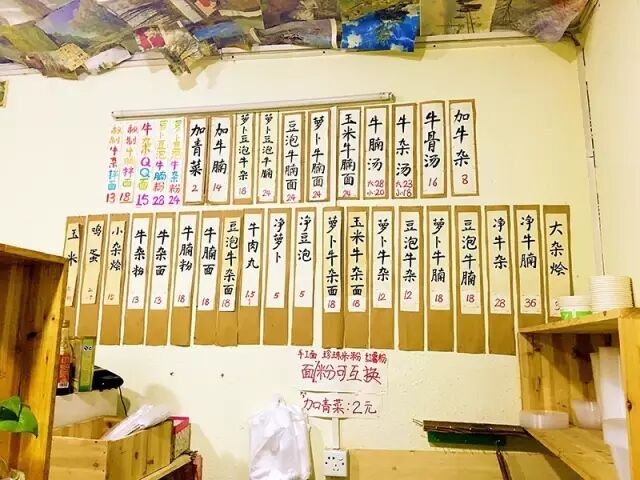 秘制牛杂拌面 13
秘制牛腩拌面 18
牛杂QQ面 15
萝卜豆泡牛腩粉 28
萝卜牛杂粉 24
加青菜 2
加牛腩 14
萝卜豆泡牛杂 18
萝卜豆泡牛腩 24
豆泡牛腩面 24
萝卜牛腩面 24
玉米牛腩面 24
牛腩汤 大28 小20
牛杂汤 大23 小18
牛骨汤 16
加牛杂 8
玉米
鸡蛋
小杂烩 15
牛杂粉 13
牛杂面 13
牛腩粉 18
牛腩面 18
豆泡牛杂面 18
牛肉丸 1.5
净萝卜 5
净豆泡 5
萝卜牛杂面 18
玉米牛杂面 18
萝卜牛杂 12
豆泡牛杂 12
萝卜牛腩 18
豆泡牛腩 18
净牛杂 28
净牛腩 36
大杂烩
手工面 珍珠米粉 红薯粉
面/粉可互换
加青菜:2元